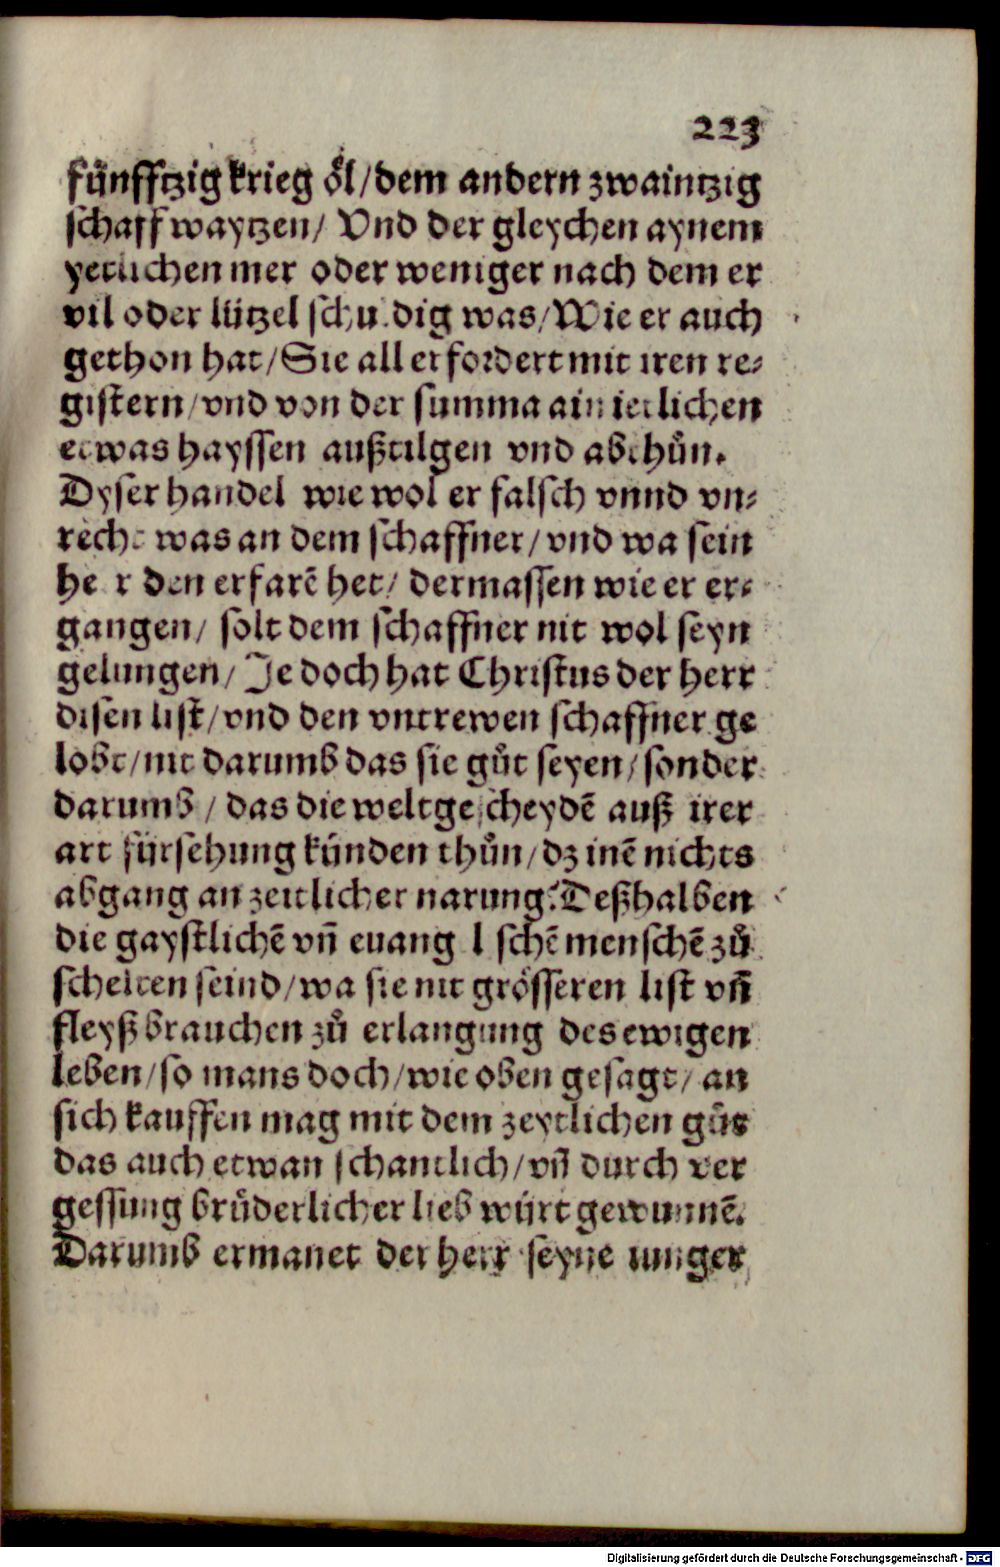 223
fünfftzig krieg öl/dem andern zwaintzig
schaff waytzen/ Vnd der gleychen aynem
yetlichen mer oder weniger nach dem er
vil oder lützel schuldig was/Wie er auch
gethon hat/Sie all erfordert mit iren re⸗
gistern/vnd von der summa aim ietlichen
etwas hayssen außtilgen vnd abthůn.
Dyser handel wie wol er falsch vnnd vn⸗
recht was an dem schaffner/vnd wa sein
herr den erfarẽ het/ dermassen wie er er⸗
gangen/ solt dem schaffner nit wol seyn
gelungen/Je doch hat Christus der herr
disen list/vnd den vntrewen schaffner ge
lobt/nit darumb das sie gůt seyen/sonder
darumb/ das die weltgescheydẽ auß irer
art fürsehung künden thůn/dz inẽ nichts
abgang an zeitlicher narung. Deßhalben
die gaystlichẽ vñ euangelischẽ menschẽ zů
schelten seind/wa sie nit grösseren list vñ
fleyß brauchen zů erlangung des ewigen
leben/so mans doch/wie oben gesagt/ an
sich kauffen mag mit dem zeytlichen gůt
das auch etwan schantlich/vñ durch ver
gessung brůderlicher lieb würt gewunnẽ.
Darumb ermanet der herr seyne iunger
Digitalisierung gefördert durch die Deutsche Forschungsgemeinschaft - DFG